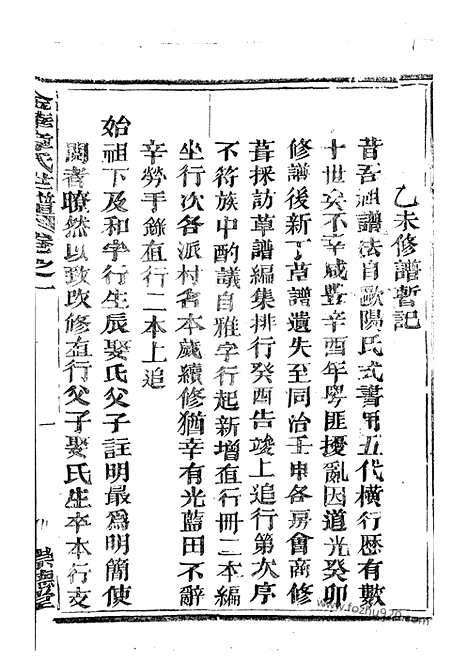 乙未修譜暫記
昔吾祖譜法自歐陽氏式書用五代橫行歷有數
十世矣不幸咸豐辛酉年粵匪擾亂因道光癸卯
修譜後新丁草譜遺失至同治壬申各房會商修
葺採訪草譜編集排行癸酉告竣上追行第次序
不符族中酌議自雅字行起新增直行冊二本編
坐行次各派村者本歲續修猶幸有光藍田不辭
辛勞手錄直行二本上追
始祖下及和字行生辰娶氏父子註明最為明簡使
閱者瞭然以致改修直行父子娶氏生卒本行支
金華章氏世譜卷之一
一
崇德堂
www.fozhu920.com